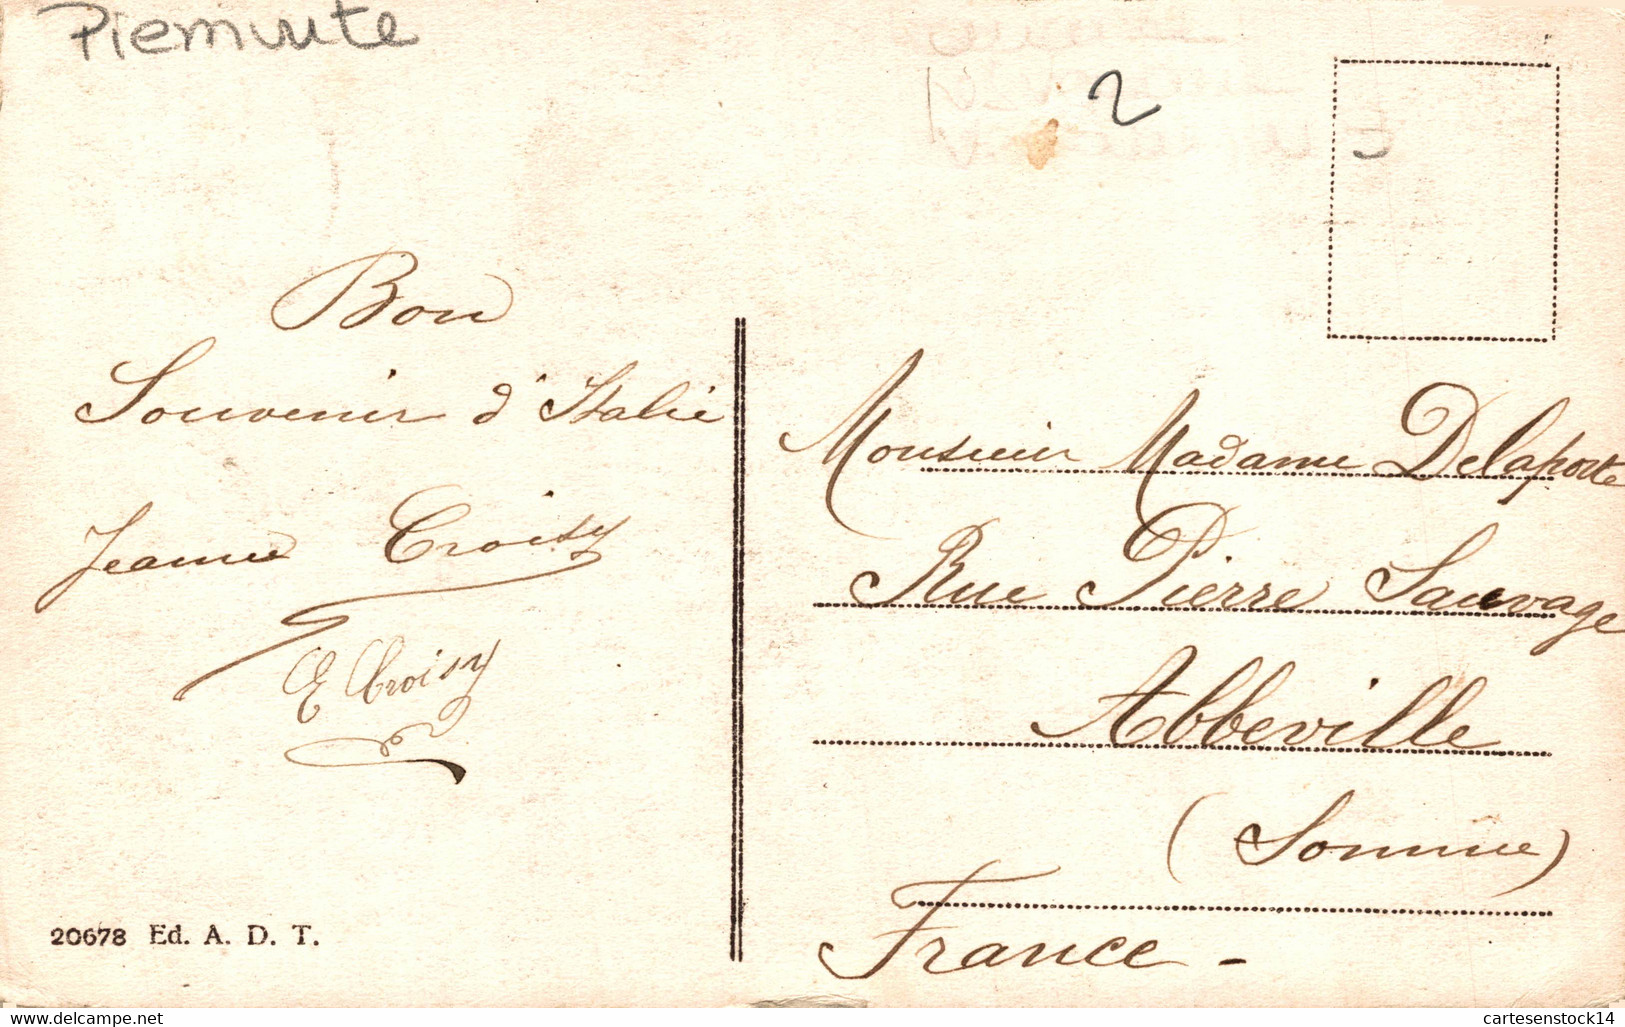 Piemonte
2
Bon
Souvenir d'Italie
Jeanne Croisy
E Croisy
20678 Ed. A. D. T.
Monsieur Madame Delaporte
Rue Pierre Sauvage
Abbeville
(Somme)
France -
www.delcampe.net
cartesenstock14